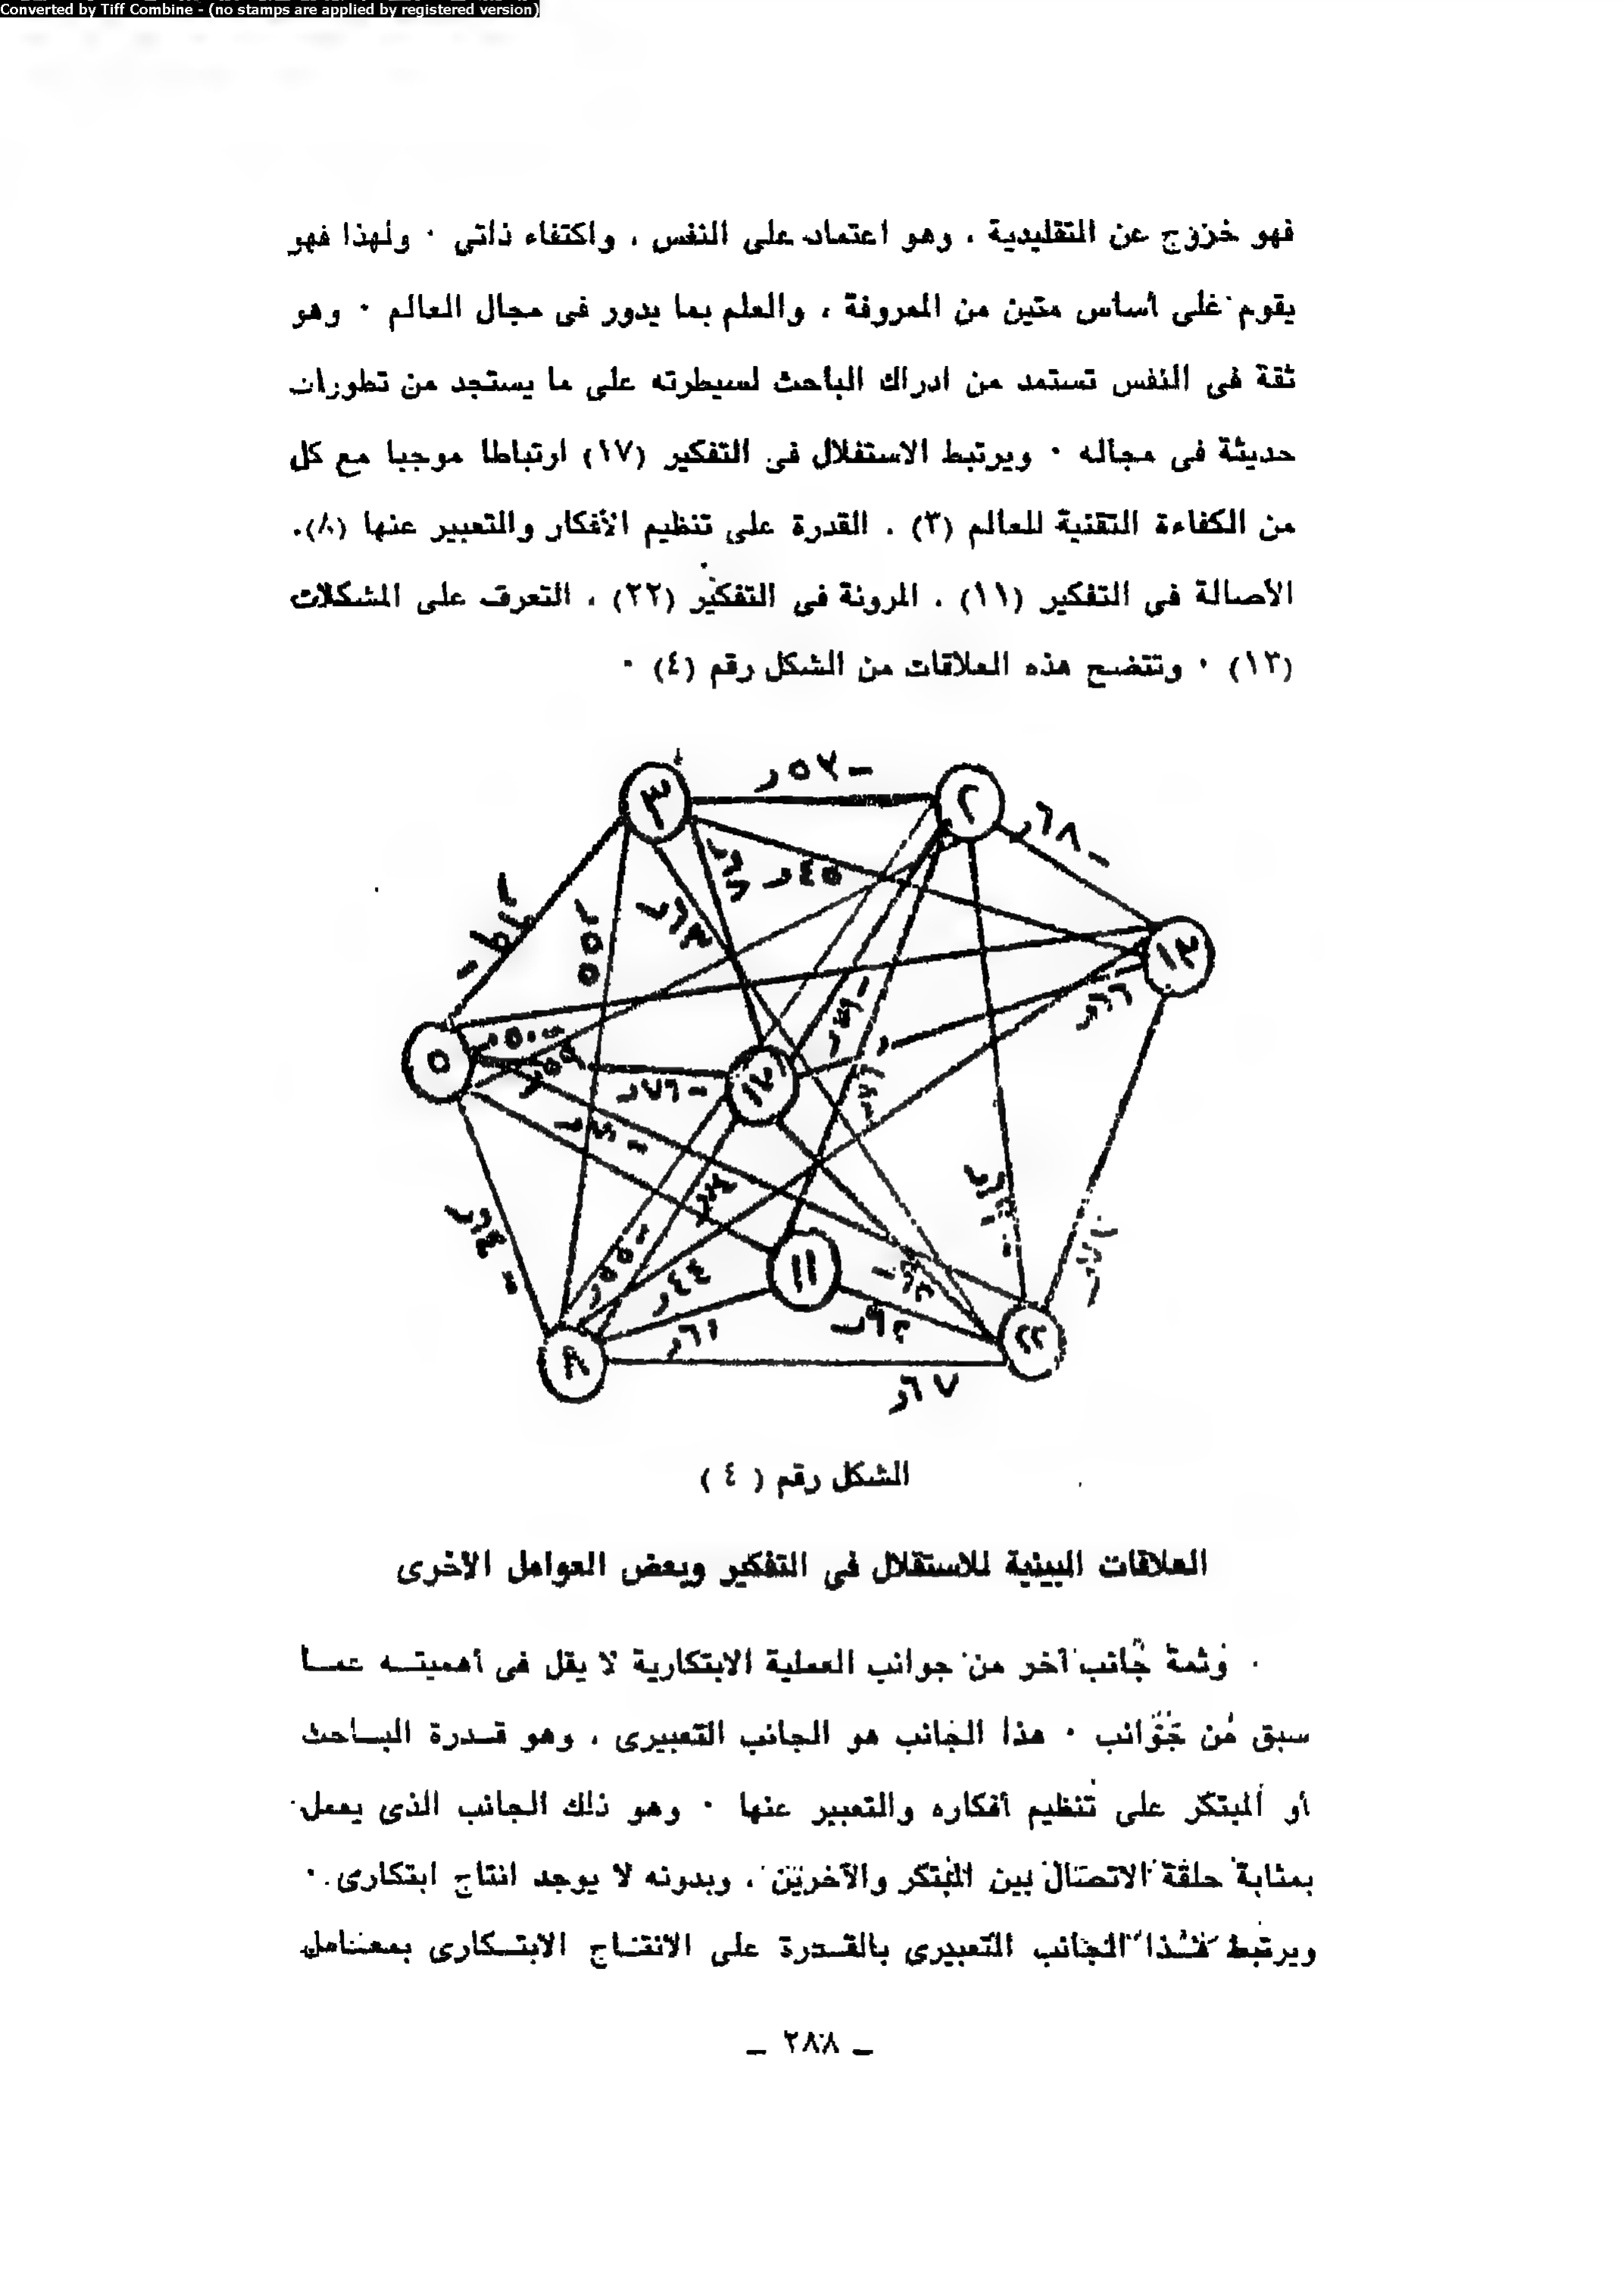 Converted by Tiff Combine - (no stamps are applied by registered version)
فهو خروج عن التقليدية ، وهو اعتماد على النفس ، واكتفاء ذاتى ٠ ولهذا فهو
يقوم على أساس متين من المعروفة ، والعلم بما يدور فى مجال العالم ٠ وهو
ثقة فى النفس تستمد من ادراك الباحث لسيطرته على ما يستجد من تطورات
حديثة فى مجاله ٠ ويرتبط الاستقلال فى التفكير (١٧) ارتباطا موجبا مع كل
من الكفاءة التقنية للعالم (٣) ، القدرة على تنظيم الأفكار والتعبير عنها (٨)،
الأصالة فى التفكير (١١) ، المرونة فى التفكير (٢٢) ، التعرف على المشكلات
(١٣) ٠ وتتضح هذه العلاقات من الشكل رقم (٤) ٠
٣
٢
٦٨ر -
٤٥ر
١٣
٥٥ر
٦٣ر
٥
١٧
٧٦ر -
٦٦ر
٦٤ر -
٥٥ر -
٤٤ر
١١
٦١ر
٨
٢٢
٦٧ر
الشكل رقم ( ٤ )
العلاقات البينية للاستقلال فى التفكير وبعض العوامل الأخرى
وثمة جانب آخر من جوانب العملية الابتكارية لا يقل فى أهميتــه عمــا
سبق من جوانب ٠ هذا الجانب هو الجانب التعبيرى ، وهو قــدرة البــاحث
أو المبتكر على تنظيم أفكاره والتعبير عنها ٠ وهو ذلك الجانب الذى يعمل
بمثابة حلقة الاتصال بين المبتكر والآخرين ، وبدونه لا يوجد انتاج ابتكارى ٠
ويرتبط هــذا الجانب التعبيرى بالقــدرة على الانتــاج الابتــكارى بمعــامل
ـ ٢٨٨ ـ